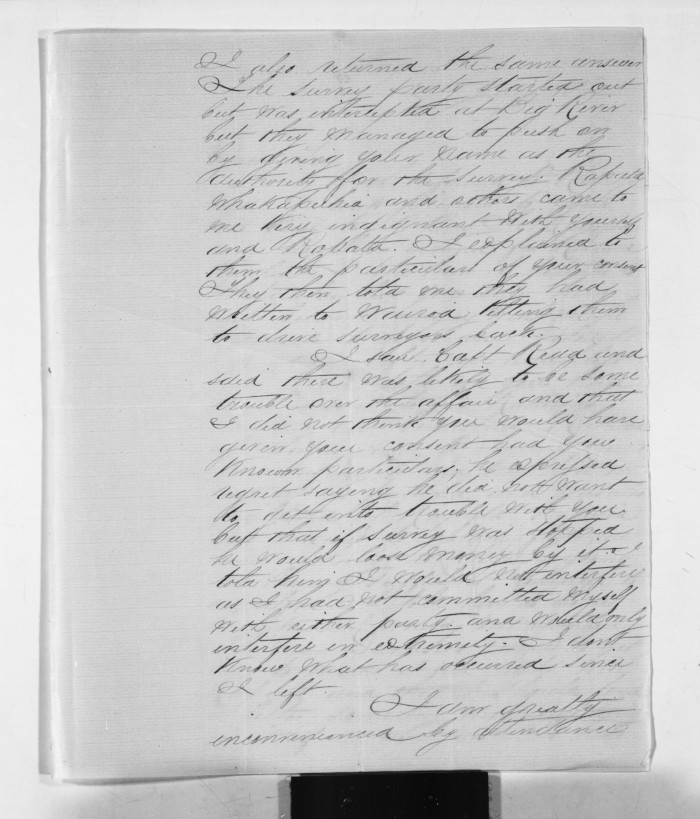 I also returned the same answer
The survey party started out
but was intercepted at Big River
but they managed to push on
by giving your name as the
authority for the survey. Rapata
Whakapuhia and others came to
me very indignant with yourself
and Ropata. I explained to
them the particulars of your consent
They then told me they had
written to Wairoa telling them
to drive surveyors back.
I saw Capt Read and
said there was likely to be some
trouble over the affair and that
I did not think you would have
given your consent had you
known particulars, he expressed
regret saying he did not want
to get into trouble with you
but that if survey was stopped
he would loose money by it. I
told him I would not interfere
as I had not committed myself
with either party and would only
interfere in extremity. I dont
know what has occurred since
I left.
I am greatly
inconvenienced by attendance